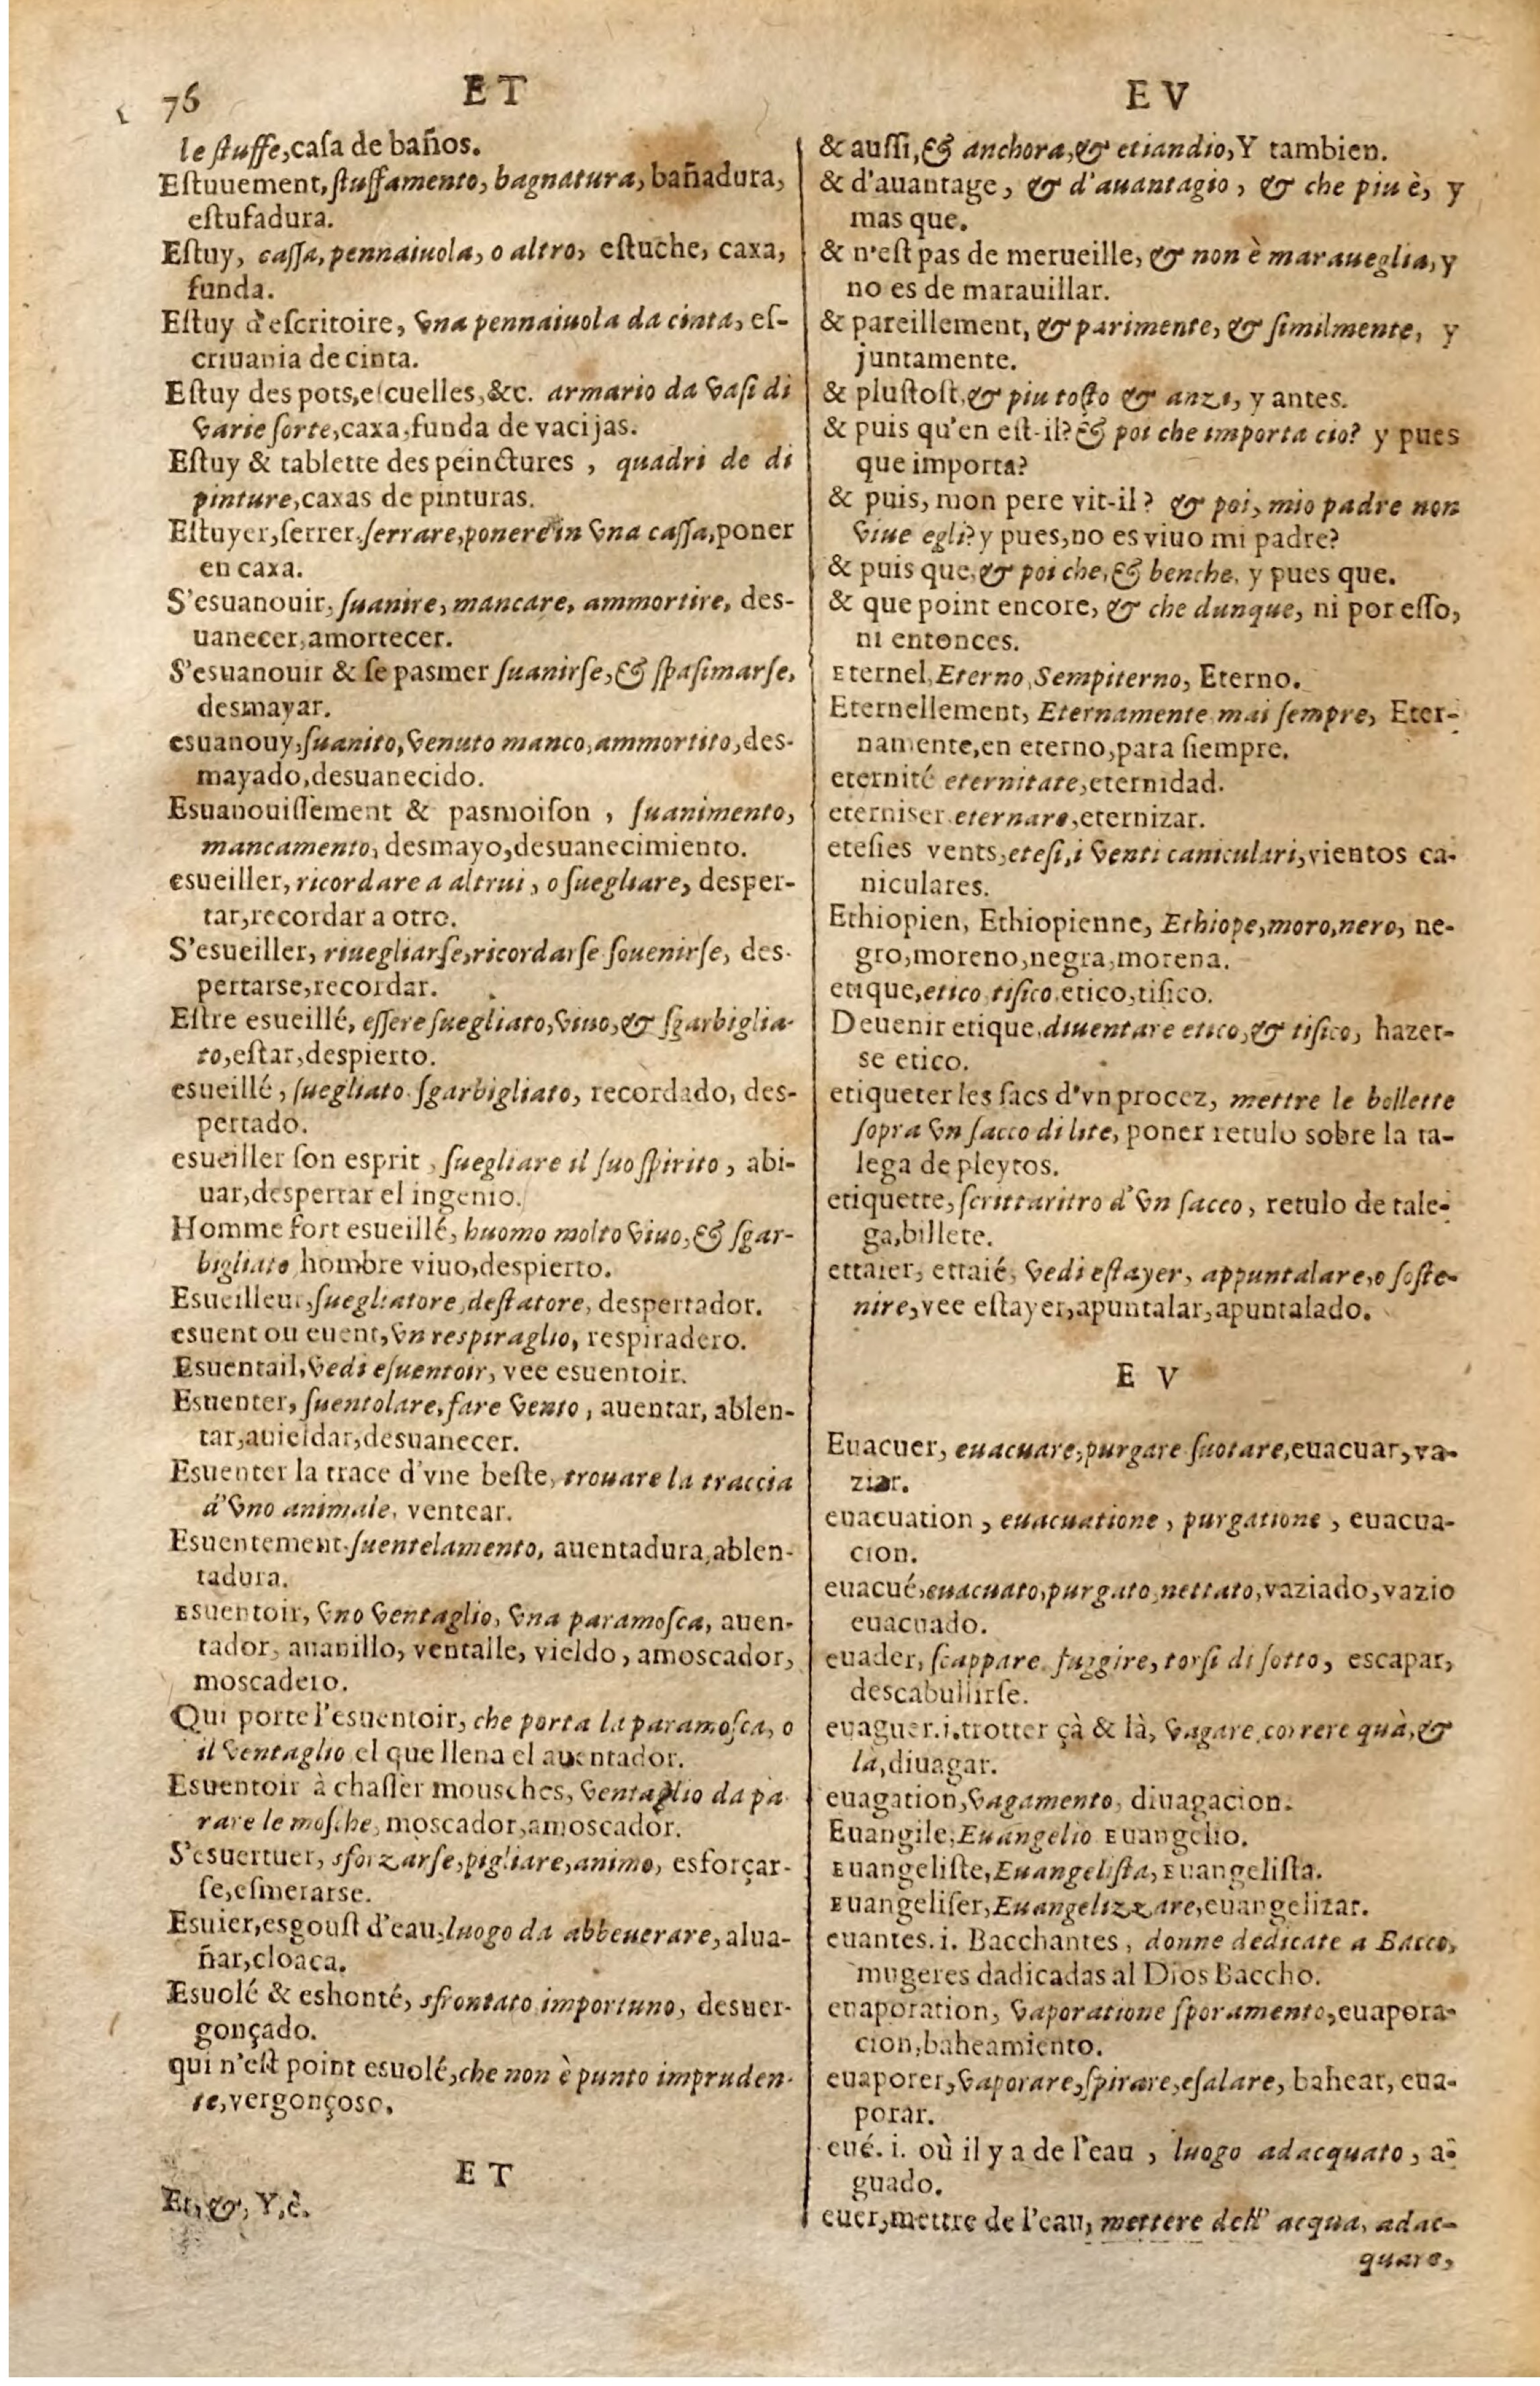 76
ET
EV
le ſtuffe, caſa de baños.
Eſtuuement, ſtuffamento, bagnatura, bañadura,
eſtufadura.
Eſtuy, caſſa, pennaiuola, o altro, eſtuche, caxa,
funda.
Eſtuy d'eſcritoire, vna pennaiuola da cinta, eſ-
criuania de cinta.
Eſtuy des pots, eſcuelles, &c. armario da vaſi di
varie ſorte, caxa, funda de vacijas.
Eſtuy & tablette des peinctures, quadri de di
pinture, caxas de pinturas.
Eſtuyer, ſerrer, ſerrare, ponere in vna caſſa, poner
en caxa.
S'esuanouir, ſuanire, mancare, ammortire, des-
uanecer, amortecer.
S'esuanouir & ſe pasmer ſuanirſe, & ſpaſimarſe,
desmayar.
esuanouy, ſuanito, venuto manco, ammortito, des-
mayado, desuanecido.
Esuanouiſſement & pasmoiſon, ſuanimento,
mancamento, desmayo, desuanecimiento.
esueiller, ricordare a altrui, o ſuegliare, desper-
tar, recordar a otro.
S'esueiller, riuegliarſe, ricordarſe ſouenirſe, des-
pertarse, recordar.
Eſtre esueillé, eſſere ſuegliato, viuo, & ſgarbiglia-
to, eſtar, despierto.
esueillé, ſuegliato ſgarbigliato, recordado, des-
pertado.
esueiller ſon esprit, ſuegliare il ſuo ſpirito, abi-
uar, despertar el ingenio.
Homme fort esueillé, huomo molto viuo, & ſgar-
bigliato hombre viuo, despierto.
Esueilleur, ſuegliatore, deſtatore, despertador.
esuent ou euent, vn respiraglio, respiradero.
Esuentail, vedi eſuentoir, vee esuentoir.
Esuenter, ſuentolare, fare vento, auentar, ablen-
tar, auieldar, desuanecer.
Esuenter la trace d'vne beſte, trouare la traccia
d'vno animale, ventear.
Esuentement, ſuentelamento, auentadura, ablen-
tadura.
Esuentoir, vno ventaglio, vna paramoſca, auen-
tador, auanillo, ventalle, vieldo, amoscador,
moscadero.
Qui porte l'esuentoir, che porta la paramoſca, o
il ventaglio el que llena el auentador.
Esuentoir à chaſſer mousches, ventaglio da pa-
rare le moſche, moscador, amoscador.
S'esuertuer, sforzarſe, pigliare, animo, esforçar-
ſe, eſmerarse.
Esuier, esgouſt d'eau, luogo da abbeuerare, alua-
ñar, cloaca.
Esuolé & eshonté, sfrontato importuno, desuer-
gonçado.
qui n'eſt point esuolé, che non è punto impruden-
te, vergonçoso.
ET
Et, &, Y, è.
& auſſi, & anchora, & etiandio, Y tambien.
& d'auantage, & d'auantagio, & che piu è, y
mas que.
& n'eſt pas de merueille, & non è maraueglia, y
no es de marauillar.
& pareillement, & parimente, & ſimilmente, y
juntamente.
& pluſtoſt, & piu toſto & anzi, y antes.
& puis qu'en eſt-il? & poi che importa cio? y pues
que importa?
& puis, mon pere vit-il? & poi, mio padre non
viue egli? y pues, no es viuo mi padre?
& puis que, & poi che, & benche, y pues que.
& que point encore, & che dunque, ni por eſſo,
ni entonces.
Eternel, Eterno, Sempiterno, Eterno.
Eternellement, Eternamente mai ſempre, Eter-
namente, en eterno, para ſiempre.
eternité eternitate, eternidad.
eterniser eternare, eternizar.
eteſies vents, eteſi, i venti caniculari, vientos ca-
niculares.
Ethiopien, Ethiopienne, Ethiope, moro, nero, ne-
gro, moreno, negra, morena.
etique, etico tiſico, etico, tiſico.
Deuenir etique, diuentare etico, & tiſico, hazer-
se etico.
etiqueter les ſacs d'vn procez, mettre le bollette
ſopra vn ſacco di lite, poner retulo sobre la ta-
lega de pleytos.
etiquette, ſcrittaritro d'vn ſacco, retulo de tale-
ga, billete.
ettaier, ettaié, vedi eſtayer, appuntalare, o ſoſte-
nire, vee eſtayer, apuntalar, apuntalado.
EV
Euacuer, euacuare, purgare ſuotare, euacuar, va-
ziar.
euacuation, euacuatione, purgatione, euacua-
cion.
euacué, euacuato, purgato, nettato, vaziado, vazio
euacuado.
euader, ſcappare, fuggire, torſi di ſotto, escapar,
descabullirſe.
euaguer. i. trotter çà & là, vagare, correre quà, &
là, diuagar.
euagation, vagamento, diuagacion.
Euangile, Euangelio Euangelio.
Euangeliſte, Euangeliſta, Euangeliſta.
Euangeliſer, Euangelizzare, euangelizar.
euantes. i. Bacchantes, donne dedicate a Bacco,
mugeres dadicadas al Dios Baccho.
euaporation, vaporatione ſporamento, euapora-
cion, baheamiento.
euaporer, vaporare, ſpirare, eſalare, bahear, eua-
porar.
eué. i. où il y a de l'eau, luogo adacquato, a-
guado.
euer, mettre de l'eau, mettere dell' acqua, adac-
quare,